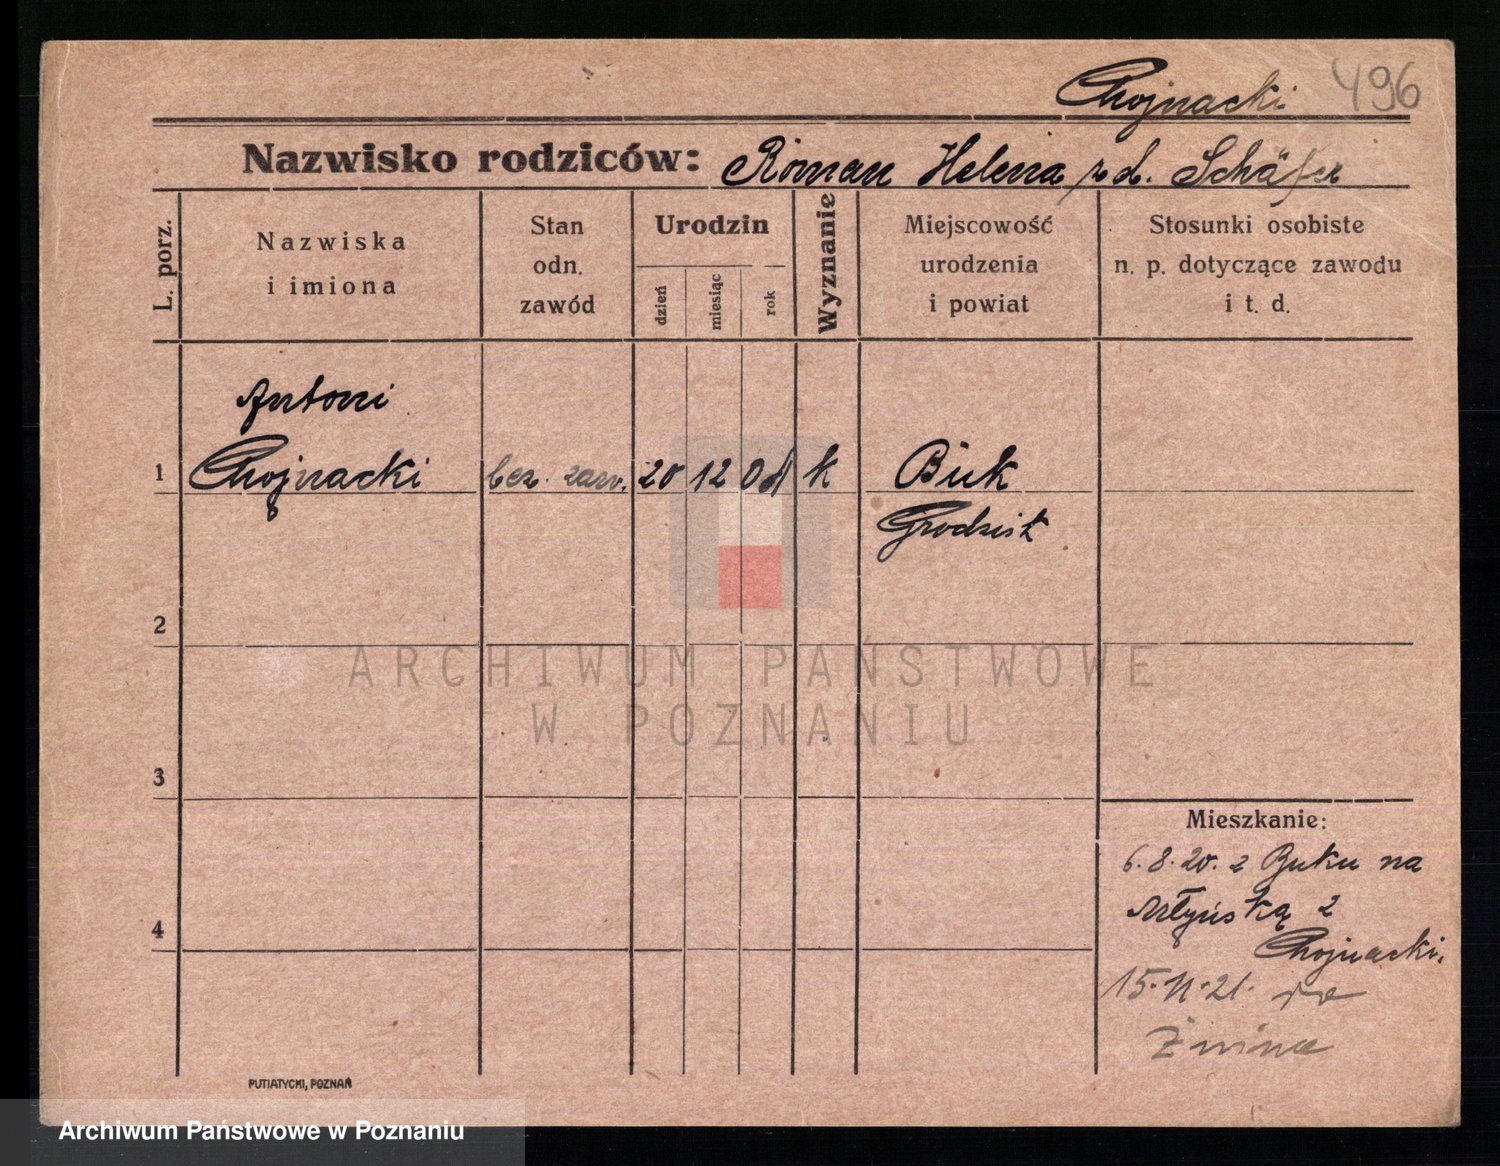 Chojnacki 496
Nazwisko rodziców: Roman Helena zd. Schäfer
L. porz.
Nazwiska
i imiona
Stan
odn.
zawód
Urodzin
dzień
miesiąc
rok
Wyznanie
Miejscowość
urodzenia
i powiat
Stosunki osobiste
n. p. dotyczące zawodu
i t. d.
Antoni
1 Chojnacki bez. zaw. 20 12 k Buk
Grodzisk
2
ARCHIWUM PAŃSTWOWE
W POZNANIU
3
Mieszkanie:
6.8.20. z Buku na
Młyńską 2
4
Chojnacki.
15.11.21. do
Żnina
PUTIATYCKI, POZNAŃ
Archiwum Państwowe w Poznaniu